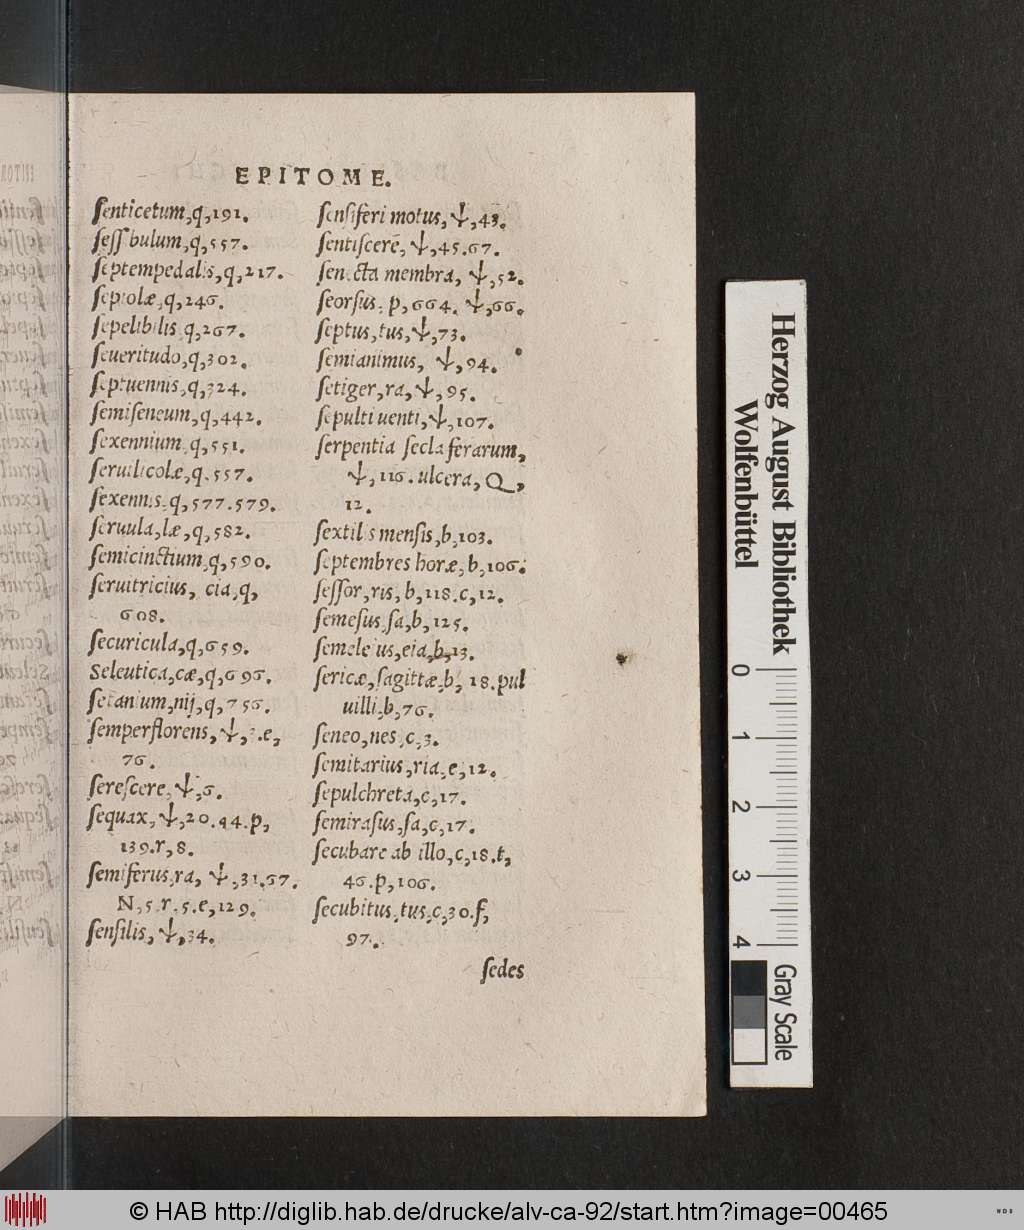 EPITOME.
ſenticetum,q,191.
ſeſſibulum,q,557.
ſeptempedalis,q,217.
ſeptolæ,q,246.
ſepelibilis,q,267.
ſeueritudo,q,302.
ſeptuennis,q,324.
ſemiſeneum,q,442.
ſexennium,q,551.
ſeruilicolæ,q.557.
ſexennis,q,577.579.
ſeruula,læ,q,582.
ſemicinctium,q,590.
ſeruitricius, cia,q,
608.
ſecuricula,q,659.
Seleutica,cæ,q,696.
ſetanium,nij,q,756.
ſemperflorens,Ψ, .e,
76.
ſereſcere,Ψ,6.
ſequax,Ψ,20.44.p,
139.r,8.
ſemiferus,ra, Ψ,31.67.
N,5.r.5.e,129.
ſenſilis,Ψ,34.
ſenſiferi motus,Ψ,43.
ſentiſcerē,Ψ,45.67.
ſenecta membra, Ψ,52.
ſeorſus, p,664. Ψ,66.
ſeptus,tus,Ψ,73.
ſemianimus, Ψ,94.
ſetiger,ra,Ψ,95.
ſepulti uenti,Ψ,107.
ſerpentia ſecla ferarum,
Ψ,116.ulcera,Q,
12.
ſextilis menſis,b,103.
ſeptembres horæ,b,106.
ſeſſor,ris,b,118.c,12.
ſemeſus,ſa,b,125.
ſemeleius,eia,b,13.
ſericæ,ſagittæ,b, 18.pul
uilli,b,76.
ſeneo,nes,c,3.
ſemitarius,ria,e,12.
ſepulchreta,c,17.
ſemiraſus,ſa,c,17.
ſecubare ab illo,c,18.t,
46.p,106.
ſecubitus,tus,c,30.f,
97.
ſedes
Herzog August Bibliothek
Wolfenbüttel
0 1 2 3 4
Gray Scale
© HAB http://diglib.hab.de/drucke/alv-ca-92/start.htm?image=00465